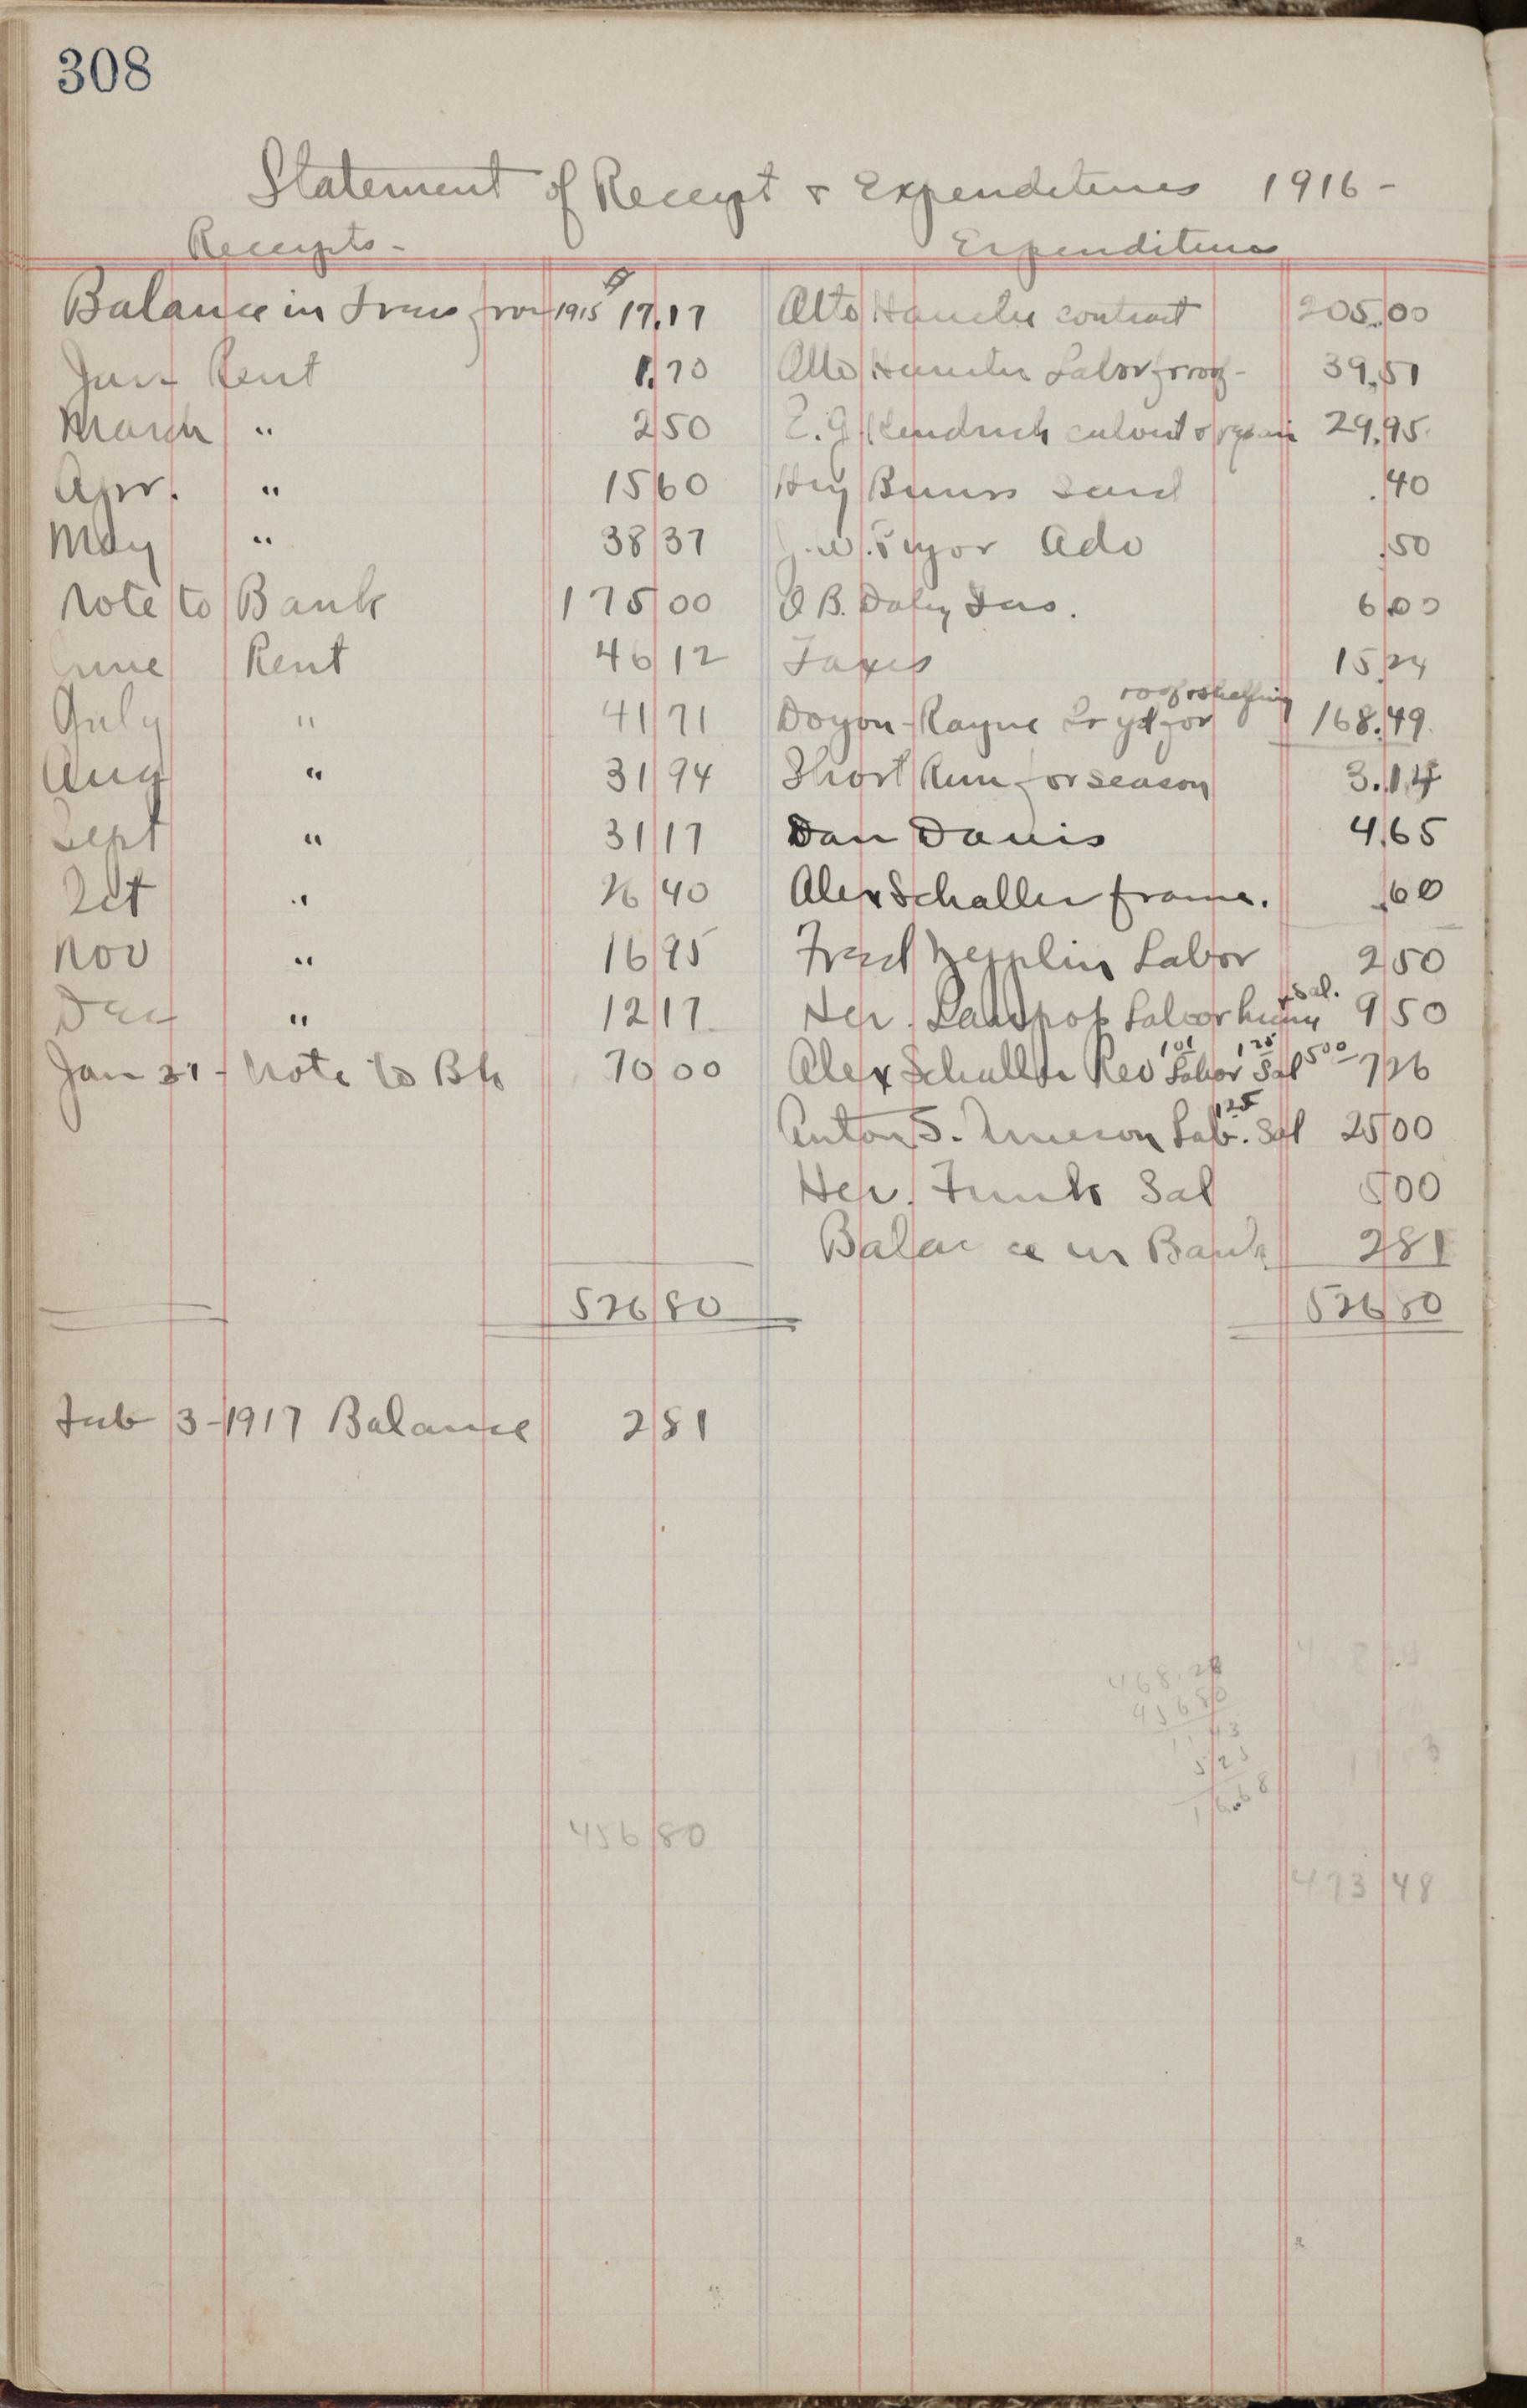 308
Statement of Receipt & Expenditures 1916 -
Receipts - Expenditures
Balance in Treas from 1915 $ 17.17
Jan - Rent 1.70
March " 2 50
Apr. " 15 60
May " 38 37
Note to Bank 175 00
June Rent 46 12
July " 41 71
Aug " 31 94
Sept " 31 17
Oct " 26 40
Nov " 16 95
Dec " 12 17
Jan 31 - Note to Bk 70 00
526 80
Feb 3 - 1917 Balance 2 81
456 80
Otto contract 205.00
Otto Labor for roof - 39.51
E. G. Kendrick culvert & repair 29.95
Hy Bunns Sand .40
J. W. Pryor Adv .50
O B. Daley Ins. 6.00
Taxes 15.24
roof & shelfing
Doyon - Rayne Lr yd for 168.49
Short Run for season 3.14
Dan Davis 4.65
Alex Schaller frame. .60
Fred Zepplin Labor 2 50
Her. Labor & Sal. 9 50
Alex Schaller Rev 101 Labor 125 Sal 500 - 7 26
Anton S. Lab. 125 Sal 25 00
Her. Funk Sal 5 00
Balance in Bank 2 81
526 80
468.28
456 80
11 43
5 25
16.68
473 48